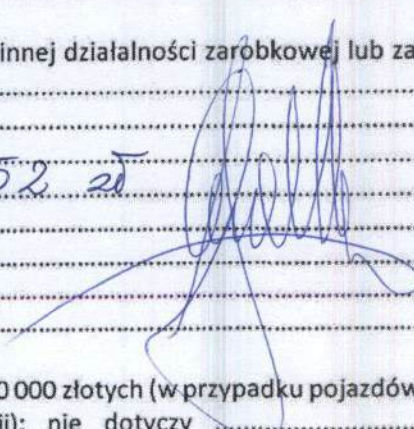 innej działalności zarobkowej lub za
52 zł
0 000 złotych (w przypadku pojazdów
ii): nie dotyczy